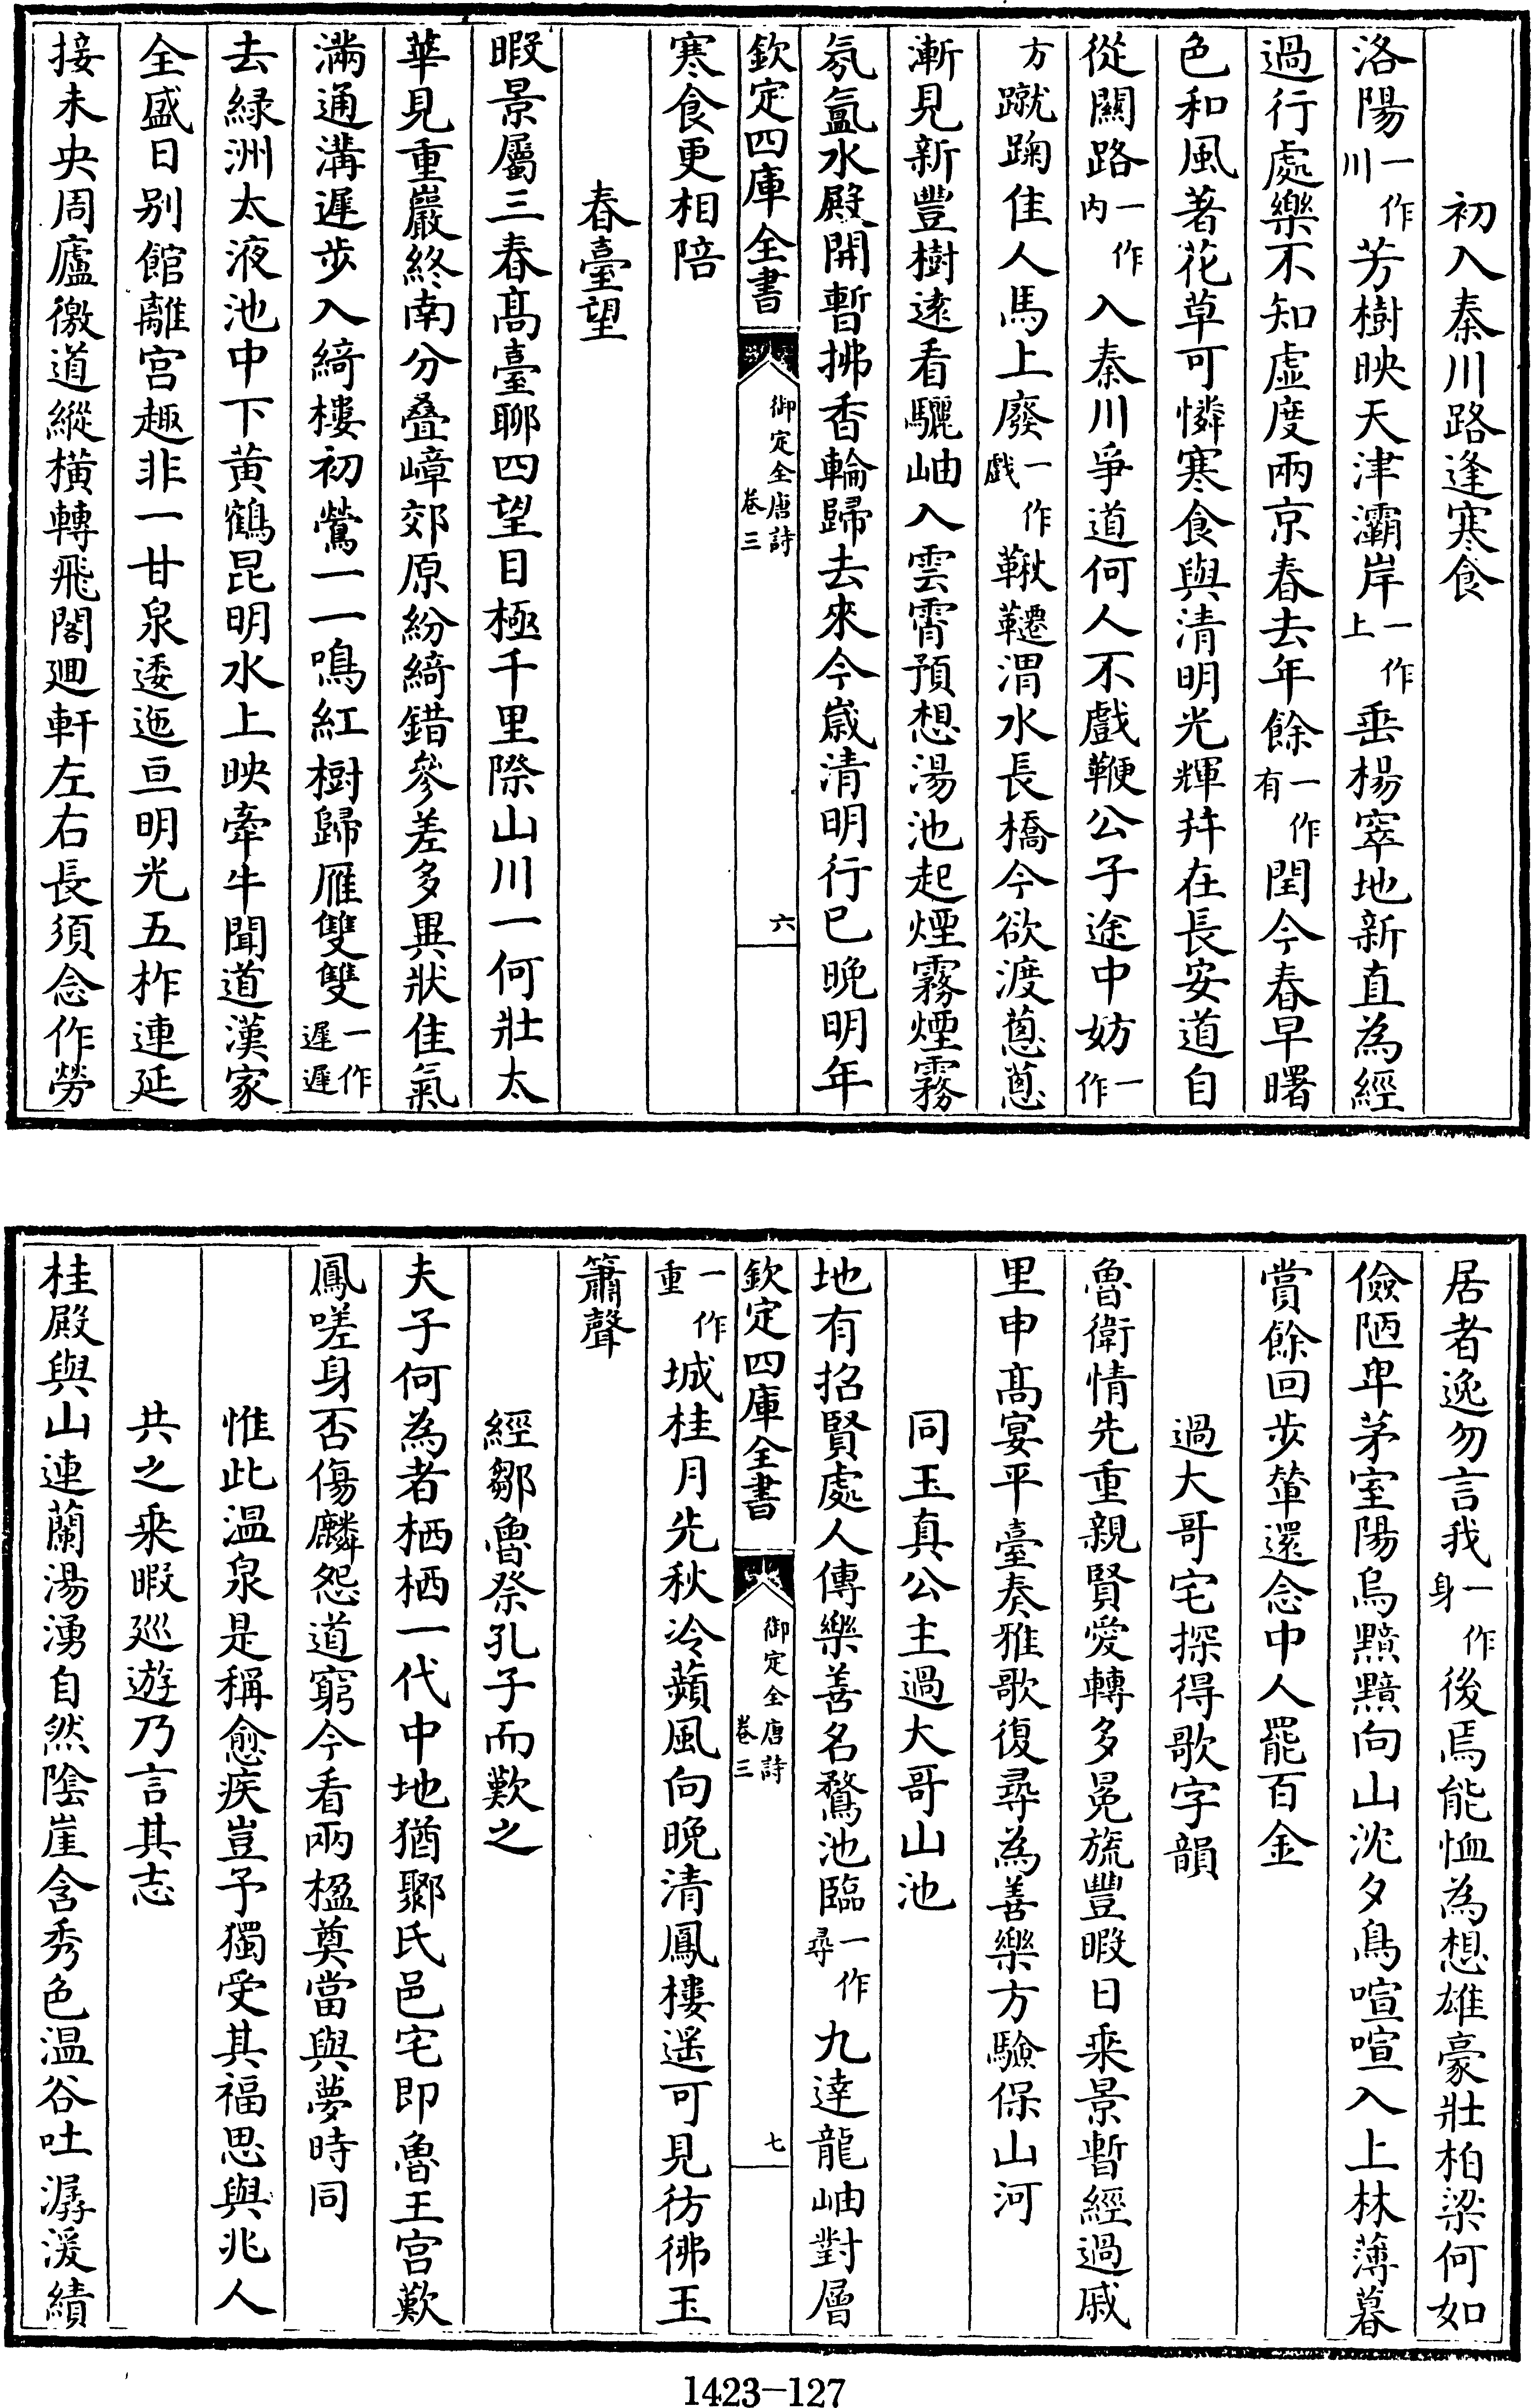 初入秦川路逢寒食
洛陽一作川芳樹映天津灞岸一作上垂楊窣地新直為經
過行處樂不知虛度兩京春去年餘一作有閏今春早曙
色和風著花草可憐寒食與清明光輝并在長安道自
從關路一作内入秦川爭道何人不戲鞭公子途中妨一作
方蹴踘佳人馬上廢一作戲鞦韆渭水長橋今欲渡蔥蔥
漸見新豐樹遠看驪岫入雲霄預想湯池起煙霧煙霧
氛氳水殿開暫拂香輪歸去來今歲清明行已晚明年
欽定四庫全書 御定全唐詩 卷三 六
寒食更相陪
春臺望
暇景屬三春高臺聊四望目極千里際山川一何壯太
華見重巖終南分疊嶂郊原紛綺錯參差多異狀佳氣
滿通溝遲步入綺樓初鶯一一鳴紅樹歸雁雙雙一作遲遲
去緑洲太液池中下黄鶴昆明水上映牽牛聞道漢家
全盛日别館離宫趣非一甘泉逶迤亘明光五柞連延
接未央周廬徼道縱橫轉飛閣廻軒左右長須念作勞
居者逸勿言我一作身後焉能恤為想雄豪壯柏梁何如
儉陋卑茅室陽烏黯黯向山沈夕鳥喧喧入上林薄暮
賞餘回步輦還念中人罷百金
過大哥宅探得歌字韻
魯衛情先重親賢愛轉多冕旒豐暇日乘景暫經過戚
里申高宴平臺奏雅歌復尋為善樂方驗保山河
同玉真公主過大哥山池
地有招賢處人傳樂善名鶩池臨一作尋九逹龍岫對層
欽定四庫全書 御定全唐詩 卷三 七
一作重城桂月先秋冷蘋風向晚清鳳樓遥可見彷彿玉
簫聲
經鄒魯祭孔子而歎之
夫子何為者栖栖一代中地猶鄹氏邑宅即魯王宫歎
鳳嗟身否傷麟怨道窮今看兩楹奠當與夢時同
惟此温泉是稱愈疾豈予獨受其福思與兆人
共之乘暇巡遊乃言其志
桂殿與山連蘭湯湧自然陰崖含秀色温谷吐潺湲績
1423-127